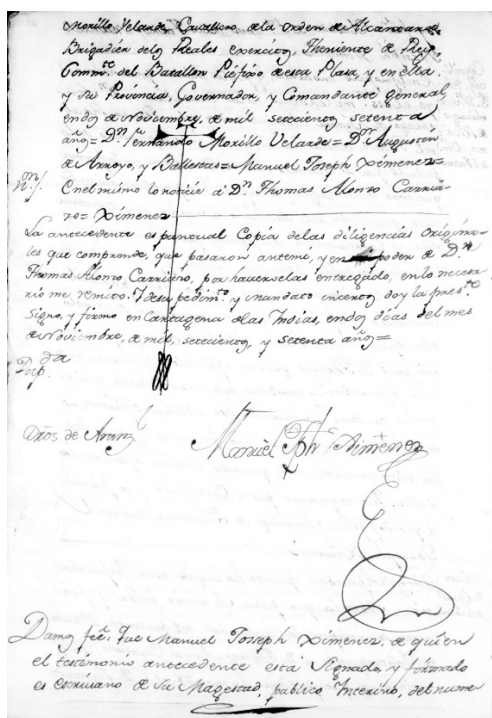 Morillo Velarde, Cavallero, de la orden de Alcantara,
Brigadier delos Reales exercitos, Theniente de Rey,
Comm.te del Batallon Pie fixo de esta Plasa, y en ella,
y su Provincia, Governador, y Comandante general,
en dos de Noviembre, de mil setecientos setenta
años= Dn. Fernando Morillo Velarde= Dn. Augustin
de Arroyo, y Ballestas= Manuel Joseph Ximenez=
on./. En el mismo lo notície â Dn. Thomas Alonzo Carriñe-
ro= Ximenez
La antecedente es puntual Copia delas diligencias origina-
les que comprende, que pasaron antemi, y en poder de Dn.
Thomas Alonzo Carriñero, por haverselas entregado, en lo necesa
rio me remito. Y de su pedim.to y mandato doy la pres.te
Signo, y firmo en Cartagena delas Indias, en dos dias del mes
de Noviembre, de mil, setecientos, y setenta años=
Dros de Aranz.l
Manuèl Jph Ximenez
Damos feè: Que Manuel Josseph Ximenez, de quien
el testimonio antecedente està Signado, y firmado
es escrivano de Su Magestad, publico Interino, del nume